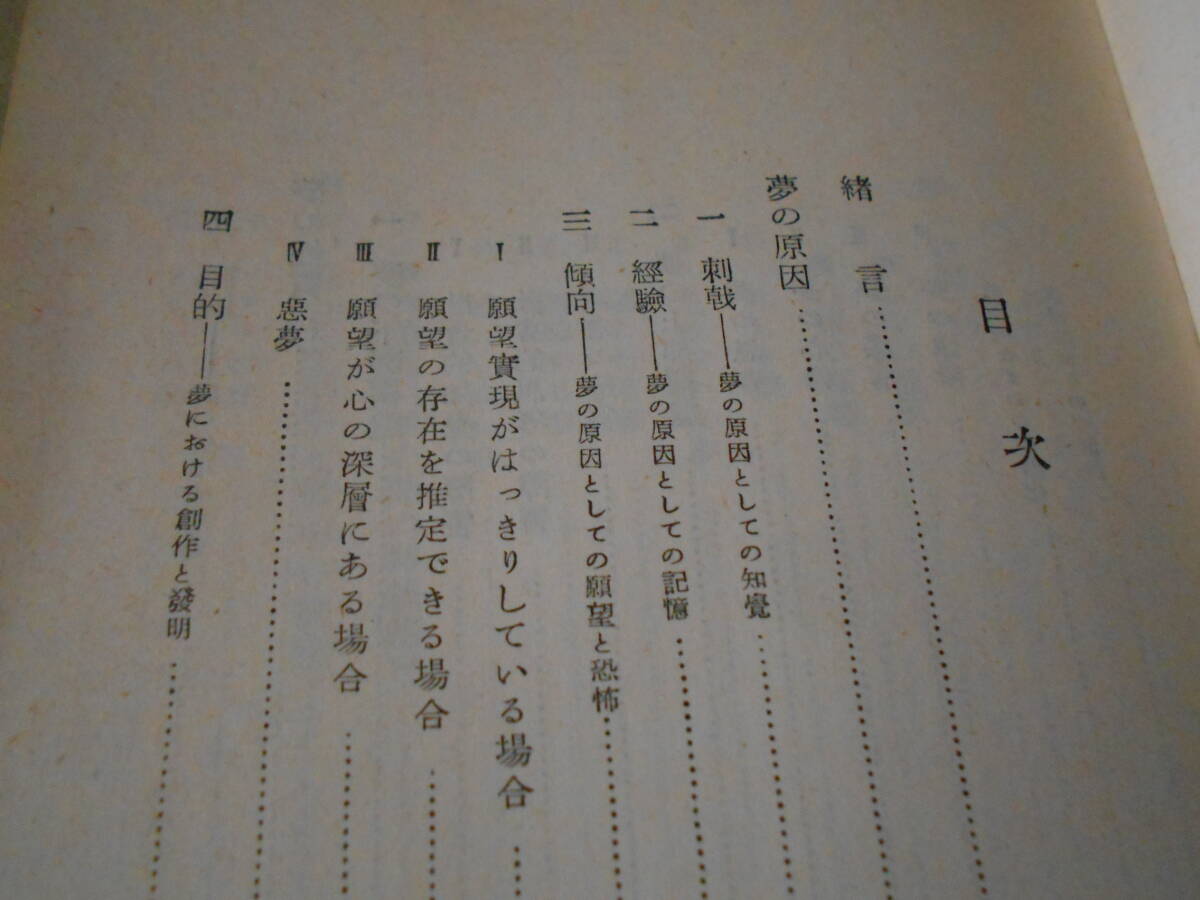 目次
緒言
夢の原因
一 刺戟――夢の原因としての知覺
二 經驗――夢の原因としての記憶
三 傾向――夢の原因としての願望と恐怖
Ⅰ 願望實現がはっきりしている場合
Ⅱ 願望の存在を推定できる場合
Ⅲ 願望が心の深層にある場合
Ⅳ 惡夢
四 目的――夢における創作と發明